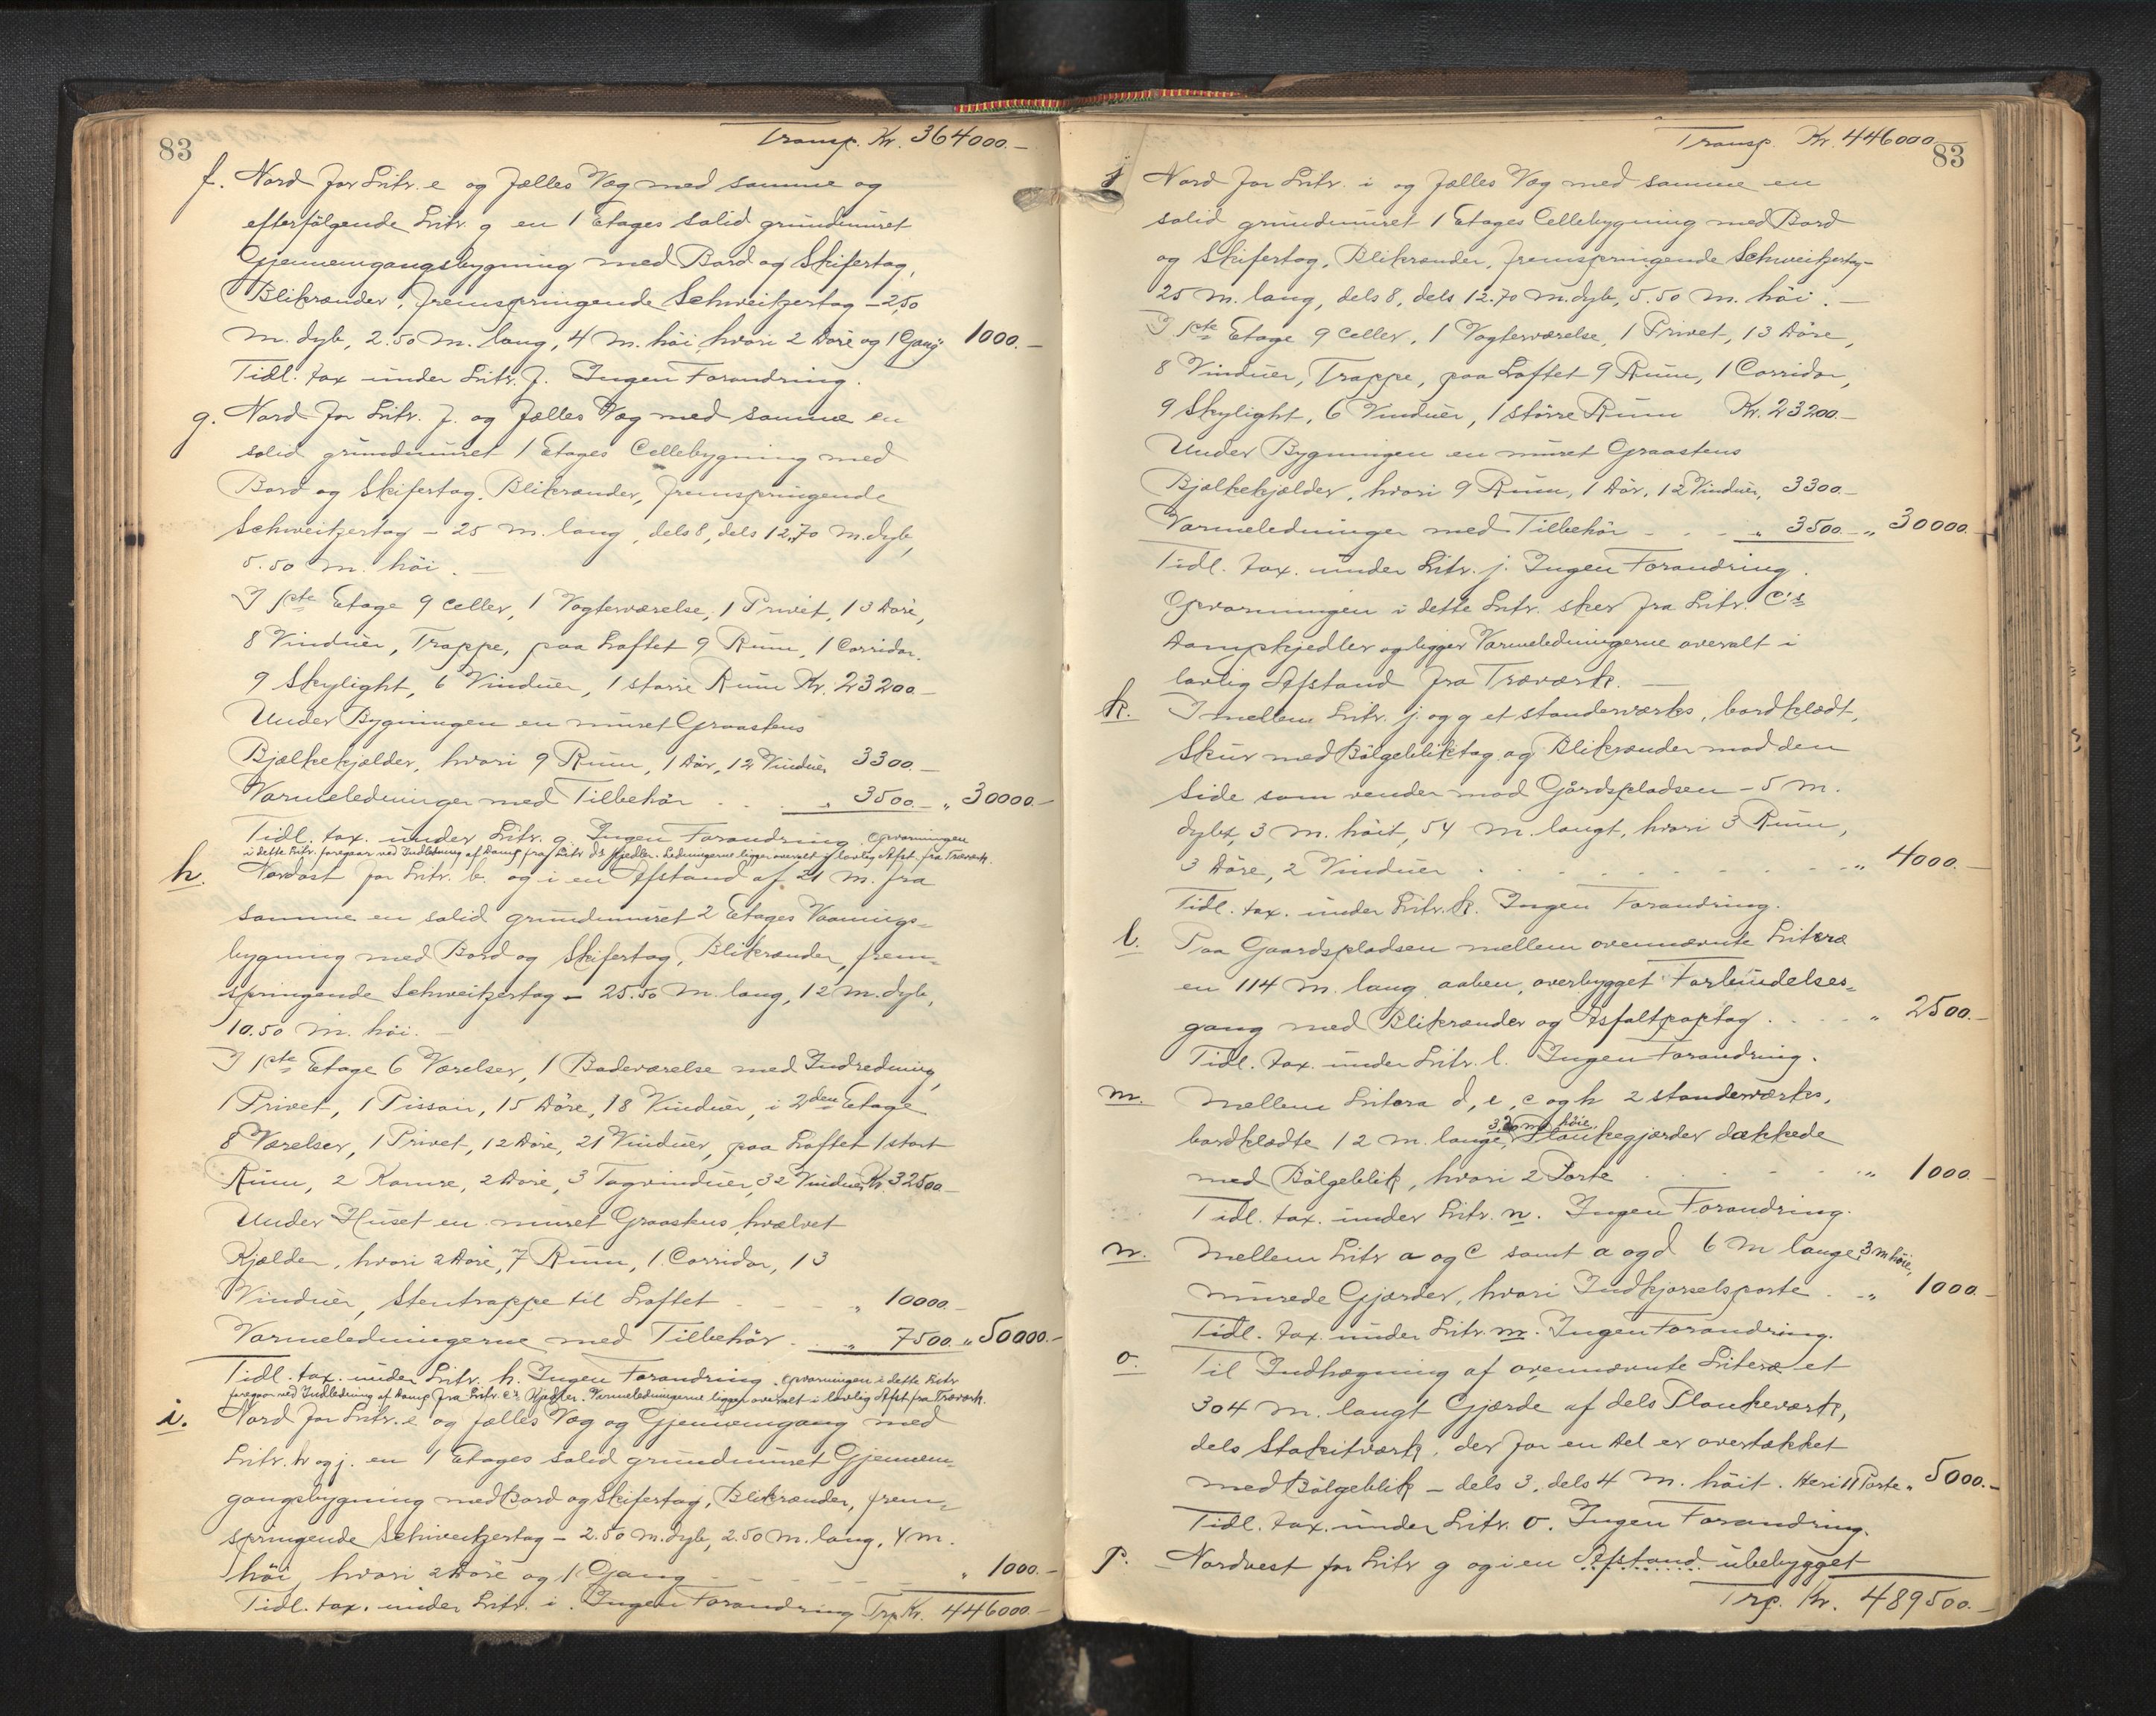 83
Transp. Kr. 364000.–
f. Nord for Litr. e og fælles Væg med samme og
efterfølgende Litr. g en 1 Etages solid grundmuret
Gjennemgangsbygning med Bord og Skifertag,
Blikrænder, fremspringende Schweitzertag – 2,50
m. dyb, 2.50 m. lang, 4 m. høi, hvori 2 Døre og 1 Gang " 1000.–
Tidl. tax under Litr. f. Ingen Forandring.
g. Nord for Litr. f. og fælles Væg med samme en
solid grundmuret 1 Etages Cellebygning med
Bord og Skifertag, Blikrænder, fremspringende
Schweitzertag – 25 m. lang, dels 8, dels 12,70 m. dyb,
5.50 m. høi. –
I 1ste Etage 9 Celler, 1 Vagterværelse, 1 Privet, 13 Døre,
8 Vinduer, Trappe, paa Loftet 9 Rum, 1 Corridor,
9 Skylight, 6 Vinduer, 1 større Rum Kr. 23200.–
Under Bygningen en muret Graastens
Bjælkekjælder, hvori 9 Rum, 1 Dør, 12 Vinduer 3300.–
Varmeledninger med Tilbehør . . . " 3500.– " 30000.–
Tidl. tax. under Litr. g. Ingen Forandring. Opvarmningen
i dette Litr. foregaar ved Indledning af Damp fra Litr d's Kjedler. Ledningerne ligger overalt i lovlig Afst. fra Træværk.
h. Nordost for Litr. b. og i en Afstand af 21 m. fra
samme en solid grundmuret 2 Etages Vaanings-
bygning med Bord og Skifertag, Blikrænder, frem-
springende Schweitzertag – 25.50 m. lang, 12 m. dyb,
10.50 m. høi. –
I 1ste Etage 6 Værelser, 1 Badeværelse med Indredning,
1 Privet, 1 Pissoir, 15 Døre, 18 Vinduer, i 2den Etage
8 Værelser, 1 Privet, 12 Døre, 21 Vinduer, paa Loftet 1 stort
Rum, 2 Kamre, 2 Døre, 3 Tagvinduer, 32 Vinduer Kr. 32500.–
Under Huset en muret Graastens hvælvet
Kjælder, hvori 2 Døre, 7 Rum, 1 Corridor, 13
Vinduer, Stentrappe til Loftet . . . " 10000.–
Varmeledningerne med Tilbehør . . " 7500. " 50000.–
Tidl. tax. under Litr. h. Ingen Forandring. Opvarmningen i dette Litr
foregaar ved Indledning af Damp fra Litr. c's Kjedler. Varmeledningerne ligger overalt i lovlig Afst. fra Træværk.
i. Nord for Litr. e og fælles Væg og Gjennemgang med
Litr. h og j. en 1 Etages solid grundmuret Gjennem-
gangsbygning med Bord og Skifertag, Blikrænder, frem-
springende Schweitzertag – 2.50 m. dyb, 2.50 m. lang, 4 m.
høi, hvori 2 Døre og 1 Gang . . . . " 1000.–
Tidl. tax. under Litr. i. Ingen Forandring Trp. Kr. 446000.–
Transp. Kr. 446000.–
83
j Nord for Litr. i og fælles Væg med samme en
solid grundmuret 1 Etages Cellebygning med Bord
og Skifertag, Blikrænder, fremspringende Schweitzertag –
25 m. lang, dels 8, dels 12.70 m. dyb, 5.50 m. høi. –
I 1ste Etage 9 Celler, 1 Vagterværelse, 1 Privet, 13 Døre,
8 Vinduer, Trappe, paa Loftet 9 Rum, 1 Corridor,
9 Skylight, 6 Vinduer, 1 større Rum Kr. 23200.–
Under Bygningen en muret Graastens
Bjælkekjælder, hvori 9 Rum, 1 Dør, 12 Vinduer, 3300.–
Varmeledninger med Tilbehør . . . " 3500.– " 30000.–
Tidl. tax. under Litr. j. Ingen Forandring.
Opvarmningen i dette Litr. sker fra Litr. C's
Dampkjedler og ligger Varmeledningerne overalt i
lovlig Afstand fra Træværk. –
k. Imellem Litr. j. og g et standerværks, bordklædt,
Skur med Bølgebliktag og Blikrænder mod den
Side som vender mod Gårdspladsen – 5 m.
dybt, 3 m. høit, 54 m. langt, hvori 3 Rum,
3 Døre, 2 Vinduer . . . . . . " 4000.–
Tidl. tax. under Litr. k. Ingen Forandring.
l. Paa Gaardspladsen mellem ovennævnte Litera
en 114 m. lang aaben, overbygget Forbindelses-
gang med Blikrænder og Asfaltpaptag . . . " 2500.–
Tidl. tax. under Litr. l. Ingen Forandring.
m. Mellem Litera d, e, c og h 2 standerværks,
bordklædte 12 m. lange, 3,20 m. høie, Plankegjærder dækkede
med Bølgeblik, hvori 2 Porte . . . . " 1000.–
Tidl. tax. under Litr. n. Ingen Forandring.
n. Mellem Litr a og C samt a og d 6 m lange, 3 m høie,
murede Gjærder, hvori Indkjørselsporte . . " 1000.–
Tidl. tax. under Litr. m. Ingen Forandring.
o. Til Indhægning af ovennævnte Litera et
304 m. langt Gjærde af dels Plankeværk,
dels Stakitværk, der for en Del er overtækket
med Bølgeblik – dels 3, dels 4 m. høit. Heri 11 Porte " 5000.–
Tidl. tax. under Litr. o. Ingen Forandring.
p. Nordvest for Litr g og i en Afstand ubebygget
Trp. Kr. 489500.–